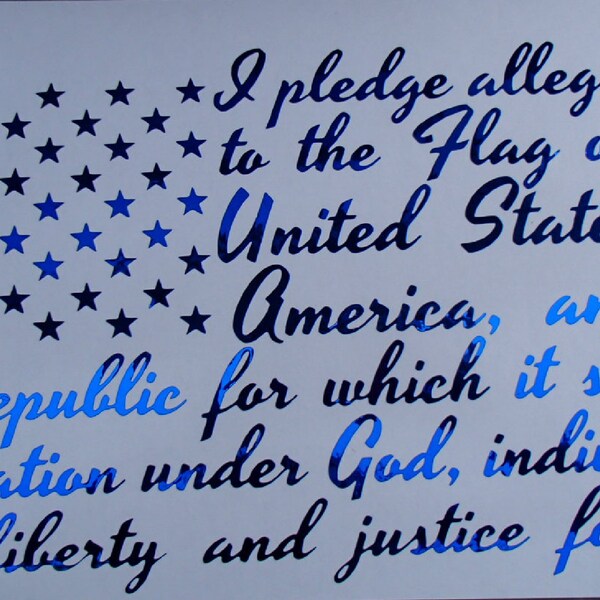 I pledge alleg
to the Flag o
United State
America, an
epublic for which it s
ation under God, indi
liberty and justice fo